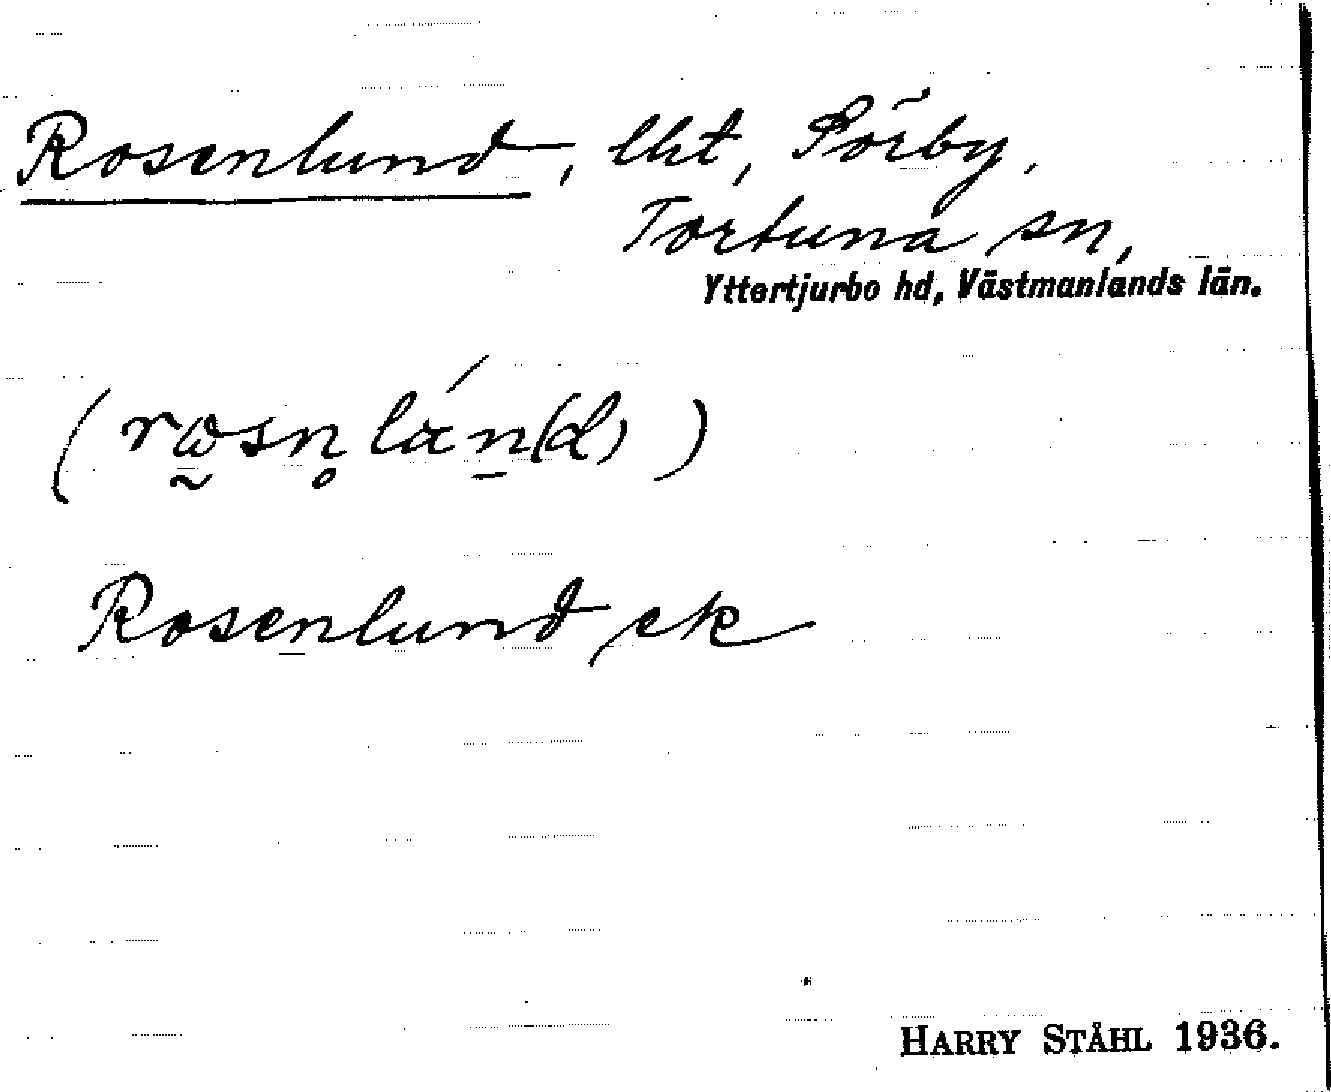 Rosenlund, lht, Sörby,
Tortuna sn,
Yttertjurbo hd, Västmanlands län.
Rosenlund ek
HARRY STÅHL 1936.